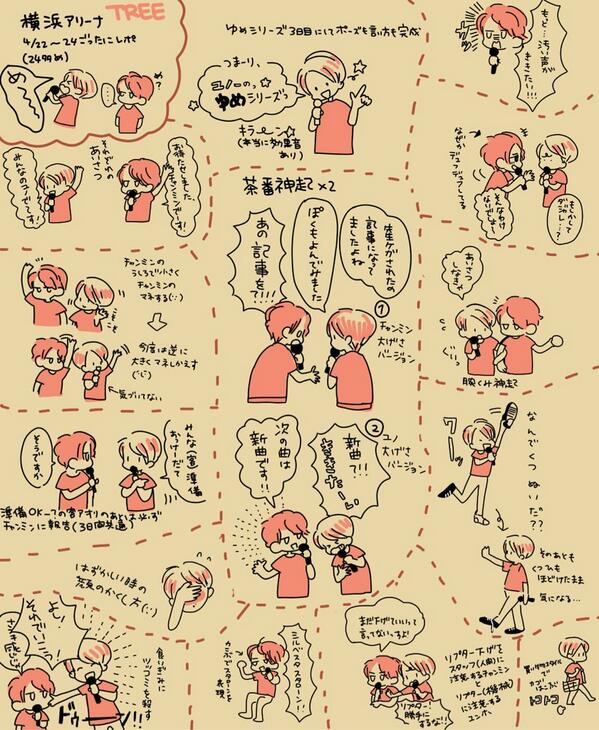 横浜アリーナ
TREE
4/22～24ごったにレポ
(24多め)
めっ
め?
ゆめシリーズ3日目にしてポーズも言い方も完成
つまり、
ユノの。
ゆめシリーズっ
キラーン☆
(本当に効果音
あり)
もど…汚い声が
ききたい…!!
お待たせしました
チャンミンです!
それぞれの
あいさつ
みんなのユノです!
なぜか
デュフデュフしてる
そんなわけ
ないでしょー
もしかして
ダジャレ…?
チャンミンの
うしろで小さく
チャンミンの
マネする(:)
今度は逆に
大きくマネしかえす
気づいてない
茶番神起×2
生ケがされたの
記事になって
ましたよね
ぼくもよんでみました
あの記事を?!!
①
チャンミン
大げさ
バージョン
あいさつ
しなきゃ
ぐいっ
腕くみ神起
②
ユノ
大げさ
バージョン
次の曲は
新曲です!!
新曲て!!
ききたーい
なんでくつぬいだ??
そのあとも
くつひも
ほどけたまま
気になる…
みんな(客)準備
おっけーだて
そうですか
準備OK～?の客アオリのあとは必ず
チャンミンに報告(3日間共通)
はずかしい時の
顔のかくし方(:)
よし
それでいこう!
食いぎみに
ツッコミを殺す
ドゥーン!!
シルベスタスターン!!
カラダでスタローンを
表現
まだ下げていいって
言ってないすよ!
リフター!
勝手に
するな!!
リフター下げる
スタッフ(人間)に
注意するチャンミン
と
リフター(機械)
に注意する
ユンホ
トコトコ